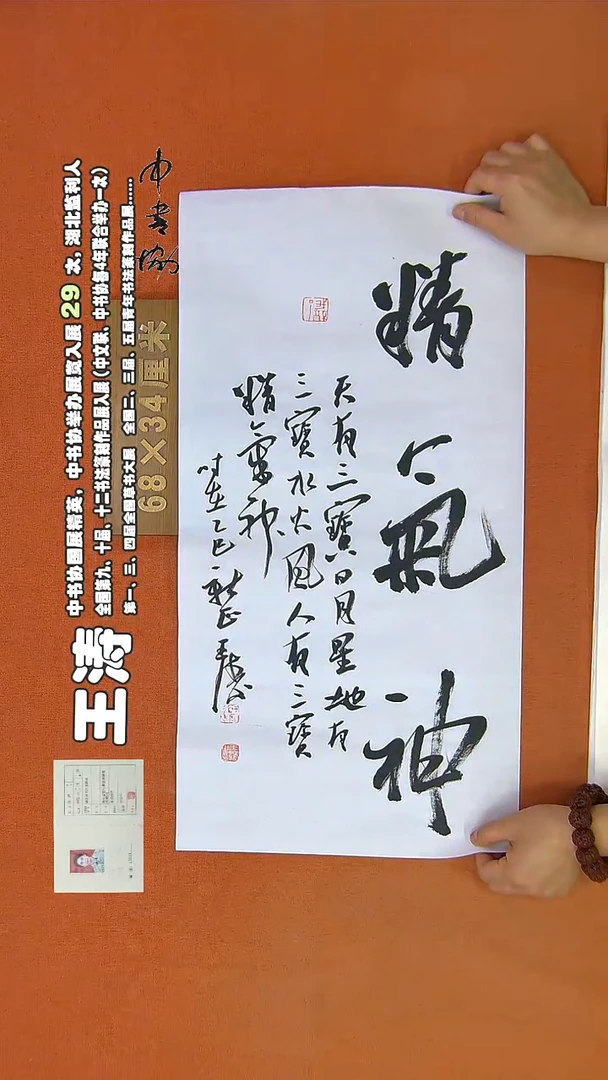 精氣神
天有三寶日月星地有
三寶水火風人有三寶
精氣神
时在乙巳新正王涛
中书协
68×34厘米
王涛
中书协国展精英，中书协举办展览入展 29 次，湖北监利人
全国第九、十届、十二书法篆刻作品展入展（中文联、中书协每4年联合举办一次）
第一、三、四届全国草书大展 全国二、三届、五届青年书法篆刻作品展......